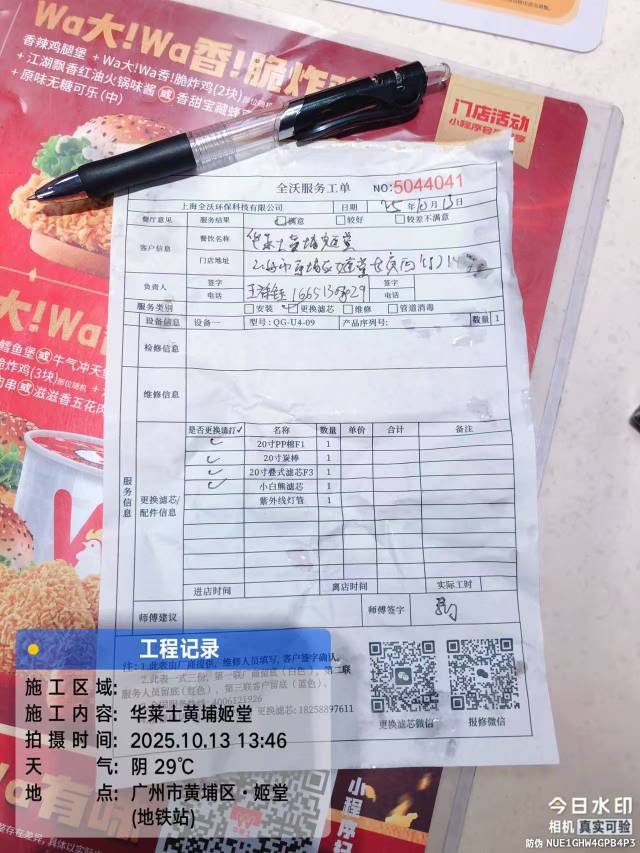 Wa大!Wa香!脆炸
香辣鸡腿堡 + Wa大!Wa香!脆炸鸡(2块)部位随机
+ 江湖飘香红油火锅味酱 或 香甜宝藏蜂
+ 原味无糖可乐(中)
门店活动
小程序会
全沃服务工单 NO:5044041
上海全沃环保科技有限公司 日期 25 年 10 月 13 日
餐厅意见 服务结果 满意 较好 较差不满意
客户信息 餐饮名称 华莱士黄埔姬堂
门店地址
负责人 签字 签字
电话 电话
服务类别 安装 更换滤芯 维修 管道消毒
设备信息 设备一 型号:QG-U4-09 产品序列号: 数量 1
检修信息
维修信息
服务信息
更换滤芯/配件信息
是否更换请打✓ 名称 数量 单价 合计 备注
✓ 20寸PP棉F1 1
✓ 20寸炭棒 1
✓ 20寸叠式滤芯F3 1
✓ 小白熊滤芯 1
紫外线灯管 1
进店时间 离店时间 实际工时
师傅建议 师傅签字
注:1.此表由厂商提供,维修人员填写,客户签字确认。
2.此表一式三份,第一联厂商留底(白色)、第二联
服务人员留底(红色)、第三联客户留底(蓝色)。
4006121926
更换滤芯:18258897611
更换滤芯微信 报修微信
大!Wa
鳕鱼堡 或 牛气冲天堡
脆炸鸡(3块)部位随机
肉串 或 滋滋香五花肉
工程记录
施工区域:
施工内容: 华莱士黄埔姬堂
拍摄时间: 2025.10.13 13:46
天气: 阴 29℃
地点: 广州市黄埔区·姬堂
(地铁站)
小程序
今日水印
相机 真实可验
防伪 NUE1GHW4GPB4P3